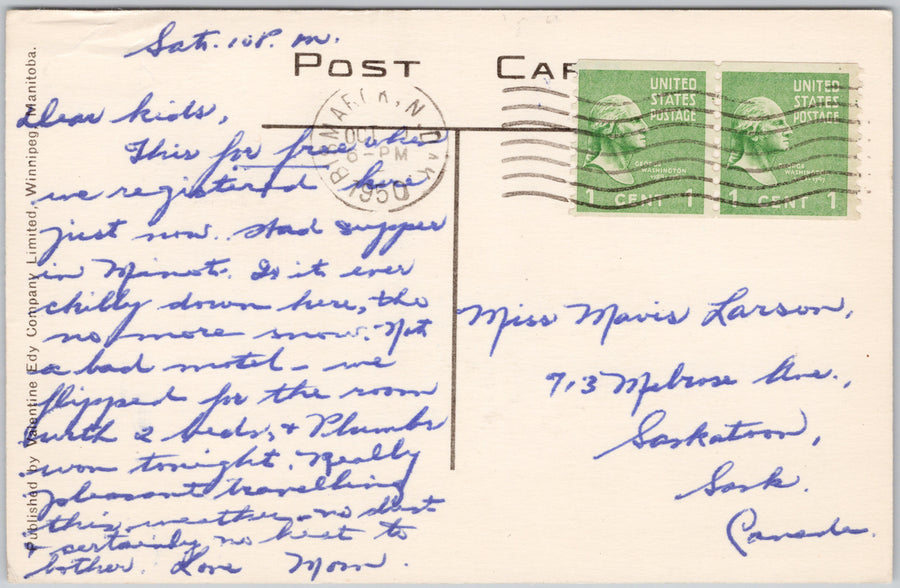 Sat. 10 P. m.
POST CAR
Dear kids,
This for free when
we registered here
just now. Had supper
in Minot. Is it ever
chilly down here, tho
no more snow. Not
a bad motel - we
flipped for the room
with 2 beds, & Plumbs
won tonight. Really
pleasant travelling
this weather - no dust
& certainly no heat to
bother. Love Mom.
BISMARCK, N. DAK.
OCT
6-PM
1950
UNITED
STATES
POSTAGE
GEORGE
WASHINGTON
1 CENT 1
UNITED
STATES
POSTAGE
GEORGE
WASHINGTON
1 CENT 1
Miss Mavis Larson,
713 Melrose Ave.,
Saskatoon,
Sask.
Canada.
Published by Valentine Edy Company Limited, Winnipeg, Manitoba.